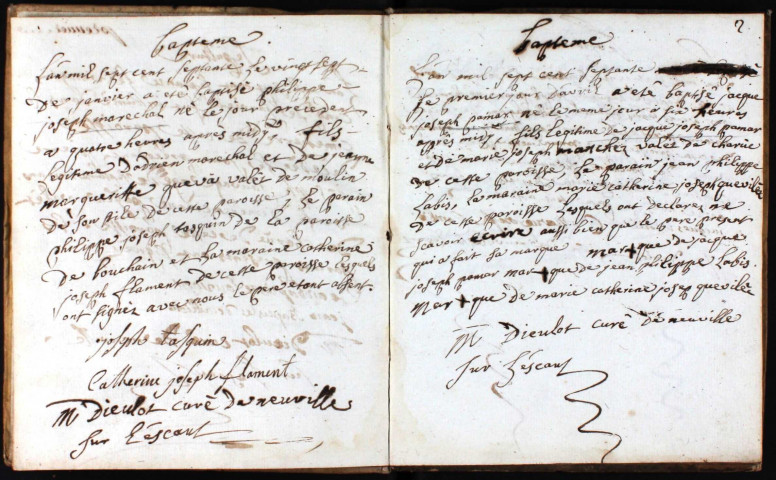 bapteme
L'an mil sept cent septante le vingt sept
de janvier a eté baptisé philippe
joseph marechal né le jour précedent
a quatre heures apres midy, fils
legitime d'adrien marechal et de jeanne
margueritte quevas valet de moulin
de son stile de cette paroisse, le parain
philippe joseph tasquin de la paroisse
de bouchain et la maraine catherine
joseph flament de cette paroisse lesquels
ont signez avec nous le pere etant absent.
joseph tasquin
Catherine joseph flament
M Dieulot curé de neuville
sur L'éscaut
2
bapteme
L'an mil sept cent septante
le premier jour d'avril a eté baptisé jacque
joseph pamar né le meme jour à six heures
apres midy, fils legitime de jacque joseph pamar
et de marie joseph manchez valet de charue
de cette paroisse, le parain jean philippe
Labis, la maraine marie catherine joseph quevilée
de cette paroisse lesquels ont declarez ne
scavoir écrire aussi bien que le pere present
qui a fait sa marque mar+que de jacque
joseph pamar mar+que de jean philippe Labis.
mar+que de marie catherine josep quevilée
M Dieulot curé de neuville
sur L'éscaut